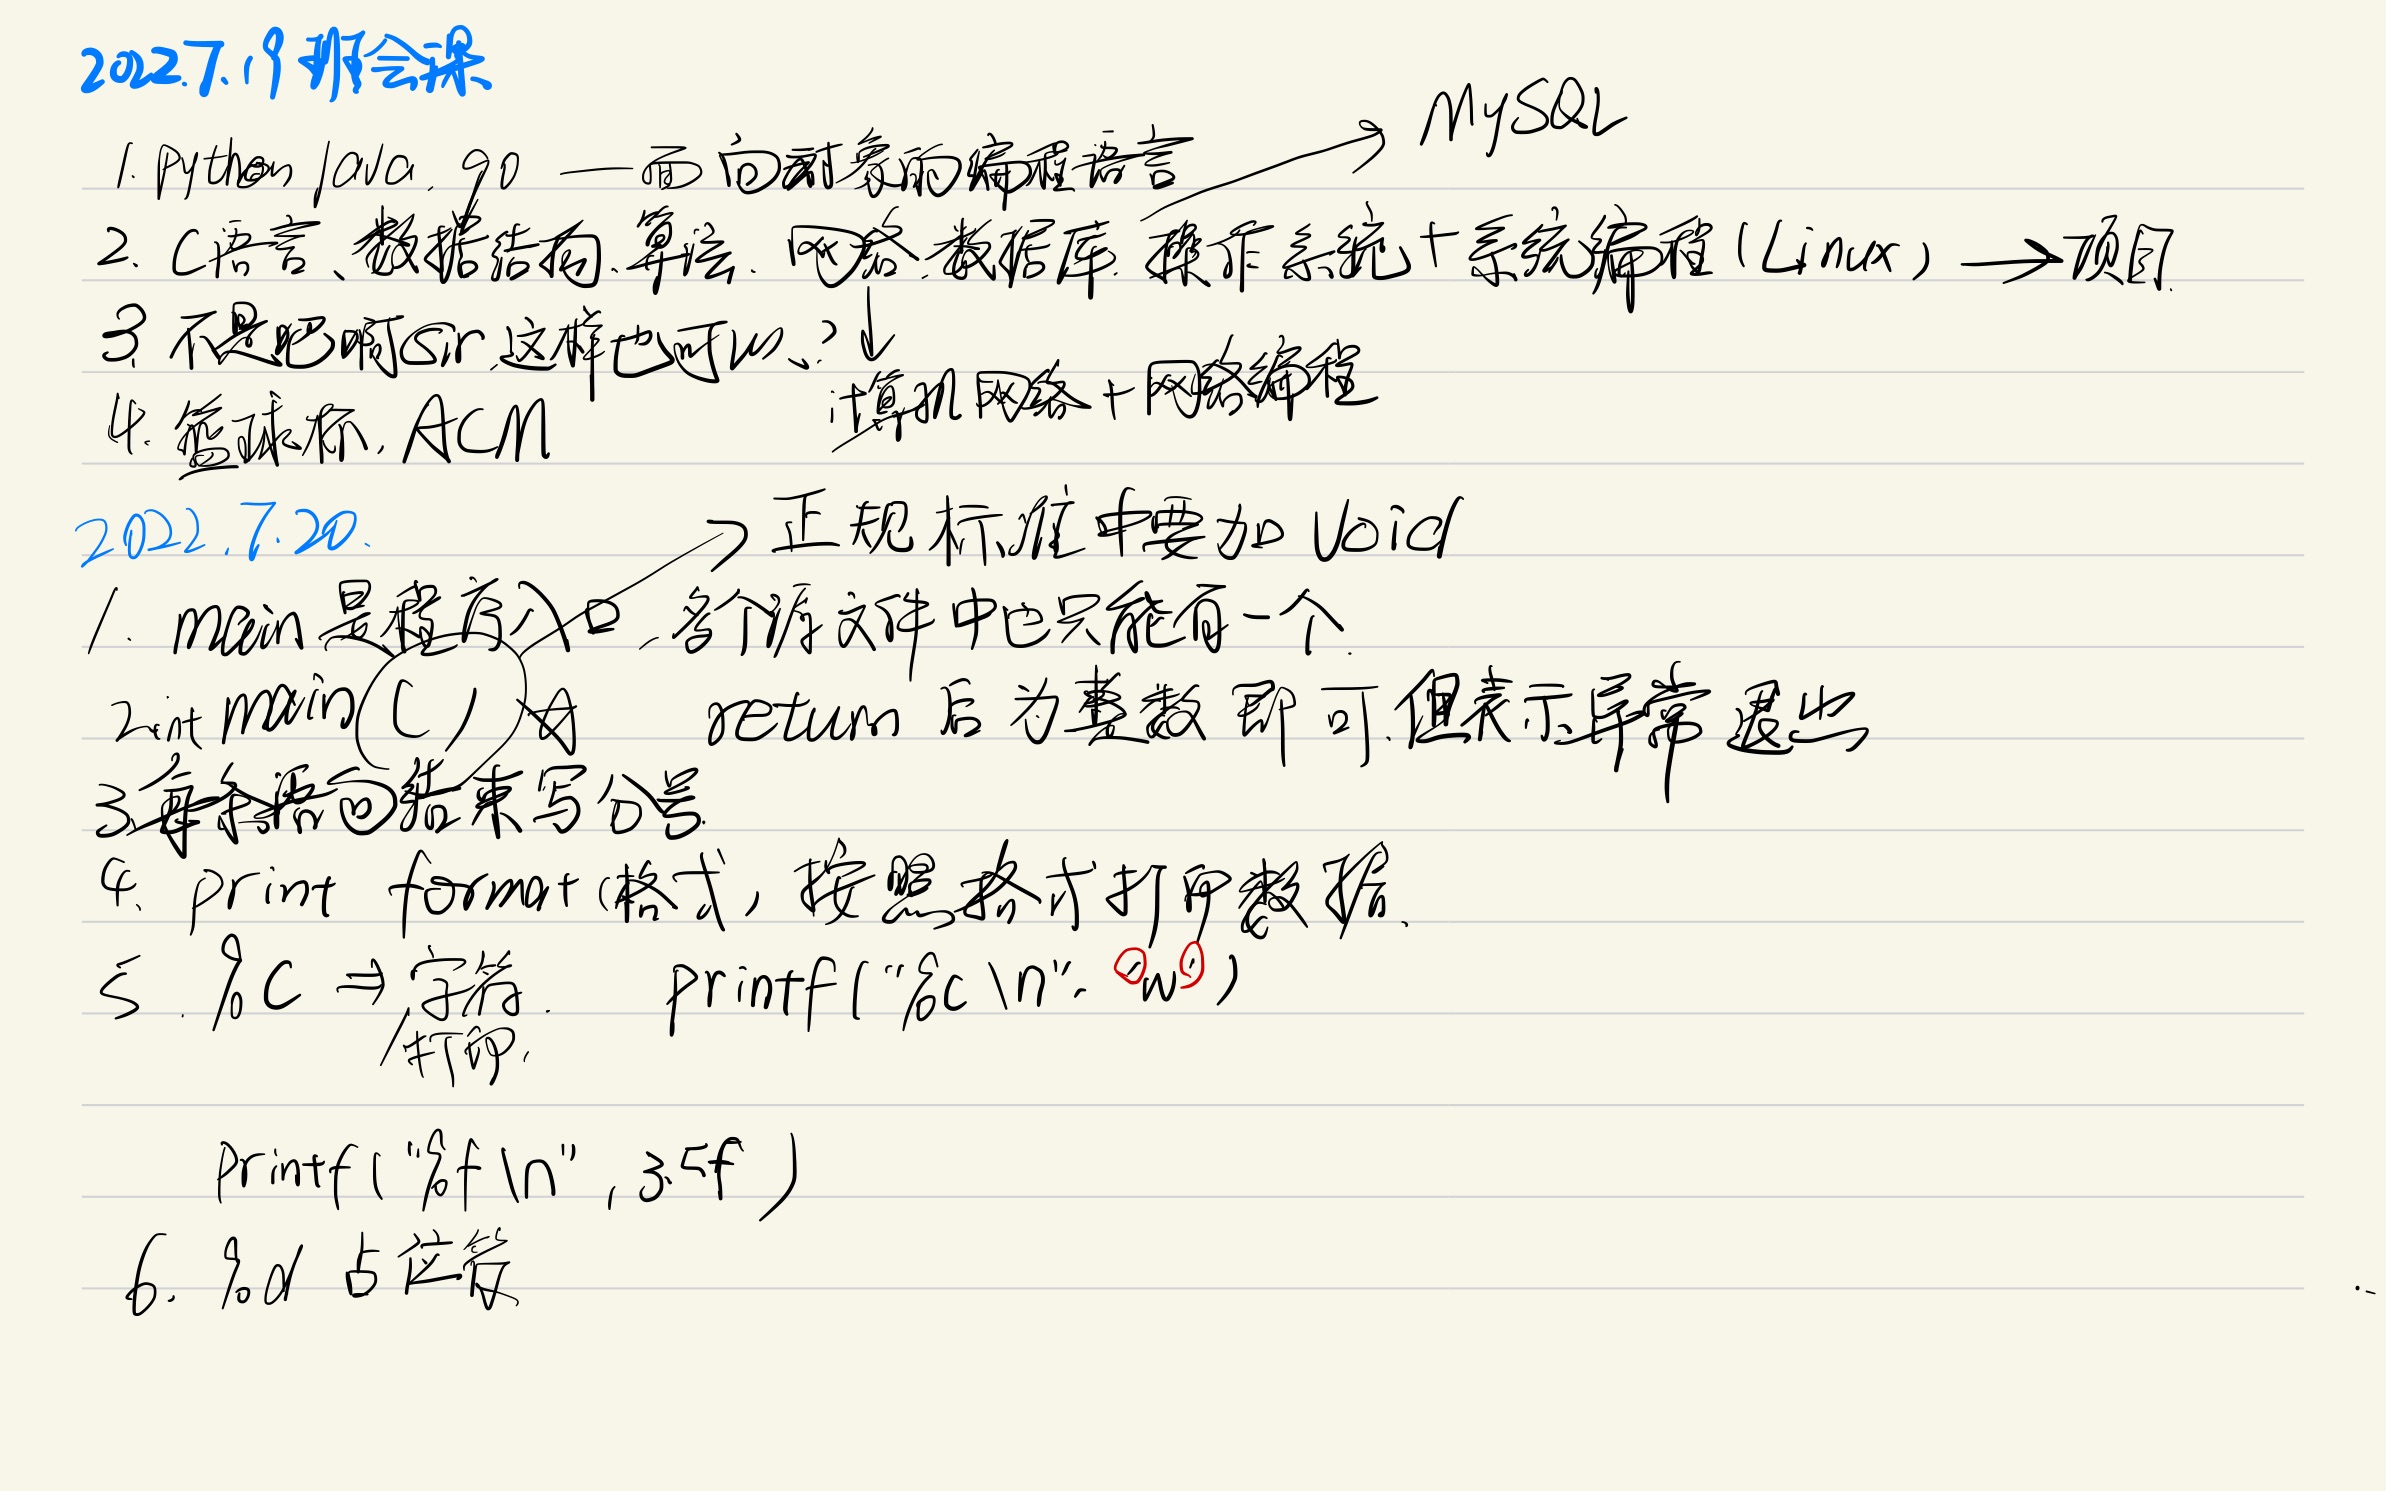 2022.7.19班会课
MySQL
1. python java. go —面向对象的编程语言
2. C语言、数据结构、算法. 网络.数据库.操作系统+系统编程(Linux) →项目.
3. 不是吧啊sir,这样也可以、?
计算机网络+网络编程
4. 篮球杯, ACM
2022.7.20.
正规标准中要加void
1. main是程序入口, 多个源文件中也只能有一个.
2.int main( ) 为 return后为整数即可.但表示异常退出
3.每条语句结束写分号.
4. print format(格式) 按照格式打印数据.
5. %c ⇒字符. printf("%c\n", 'w')
打印.
printf("%f\n", 3.5f)
6. %d 占位符